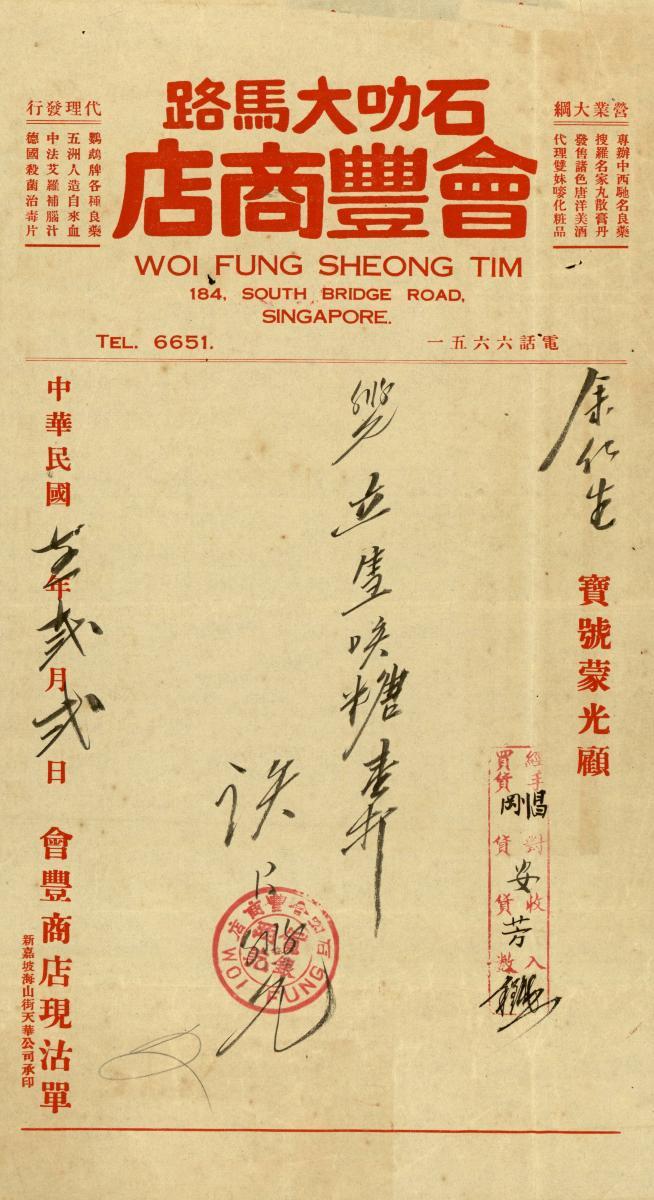 石叻大馬路
會豐商店
WOI FUNG SHEONG TIM
184, SOUTH BRIDGE ROAD,
SINGAPORE.
TEL. 6651.
電話六六五一
營業大綱
專辦中西馳名良藥
搜羅名家丸散膏丹
發售諸色唐洋美酒
代理雙妹嘜化粧品
代理發行
鸚鵡牌各種良藥
五洲人造自來血
中法艾羅補腦汁
德國殺菌治毒片
余仁生
寶號蒙光顧
經手 昌
買貨 剛
對貨 安
收貨 芳
入數
中華民國 年弍月弍日
會豐商店現沽單
新嘉坡海山街天華公司承印